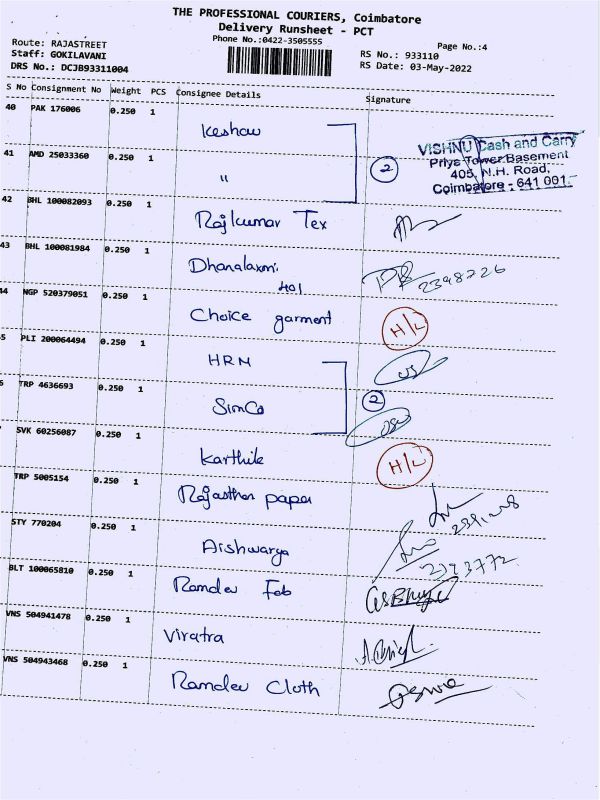 THE PROFESSIONAL COURIERS, Coimbatore
Delivery Runsheet - PCT
Phone No.:0422-3505555
Page No.:4
Route: RAJASTREET
Staff: GOKILAVANI
DRS No.: DCJB93311004
RS No.: 933110
RS Date: 03-May-2022
S No Consignment No Weight PCS Consignee Details Signature
40 PAK 176006 0.250 1 Keshav
VISHNU Cash and Carry
Priya Tower Basement
405, N.H. Road,
Coimbatore - 641 001.
41 AMD 25033360 0.250 1 " 2
42 BHL 100082093 0.250 1 Rajkumar Tex
43 BHL 100081984 0.250 1 Dhanalaxmi 401 2398226
44 NGP 520379051 0.250 1 Choice garment H/L
5 PLI 200064494 0.250 1 HRM
6 TRP 4636693 0.250 1 SimCo 2
SVK 60256087 0.250 1 Karthik H/L
TRP 5005154 0.250 1 Rajasthan paper
STY 770204 0.250 1 Aishwarya 2393772
BLT 100065810 0.250 1 Ramdev Fab
VNS 504941478 0.250 1 Viratra
VNS 504943468 0.250 1 Ramdev Cloth